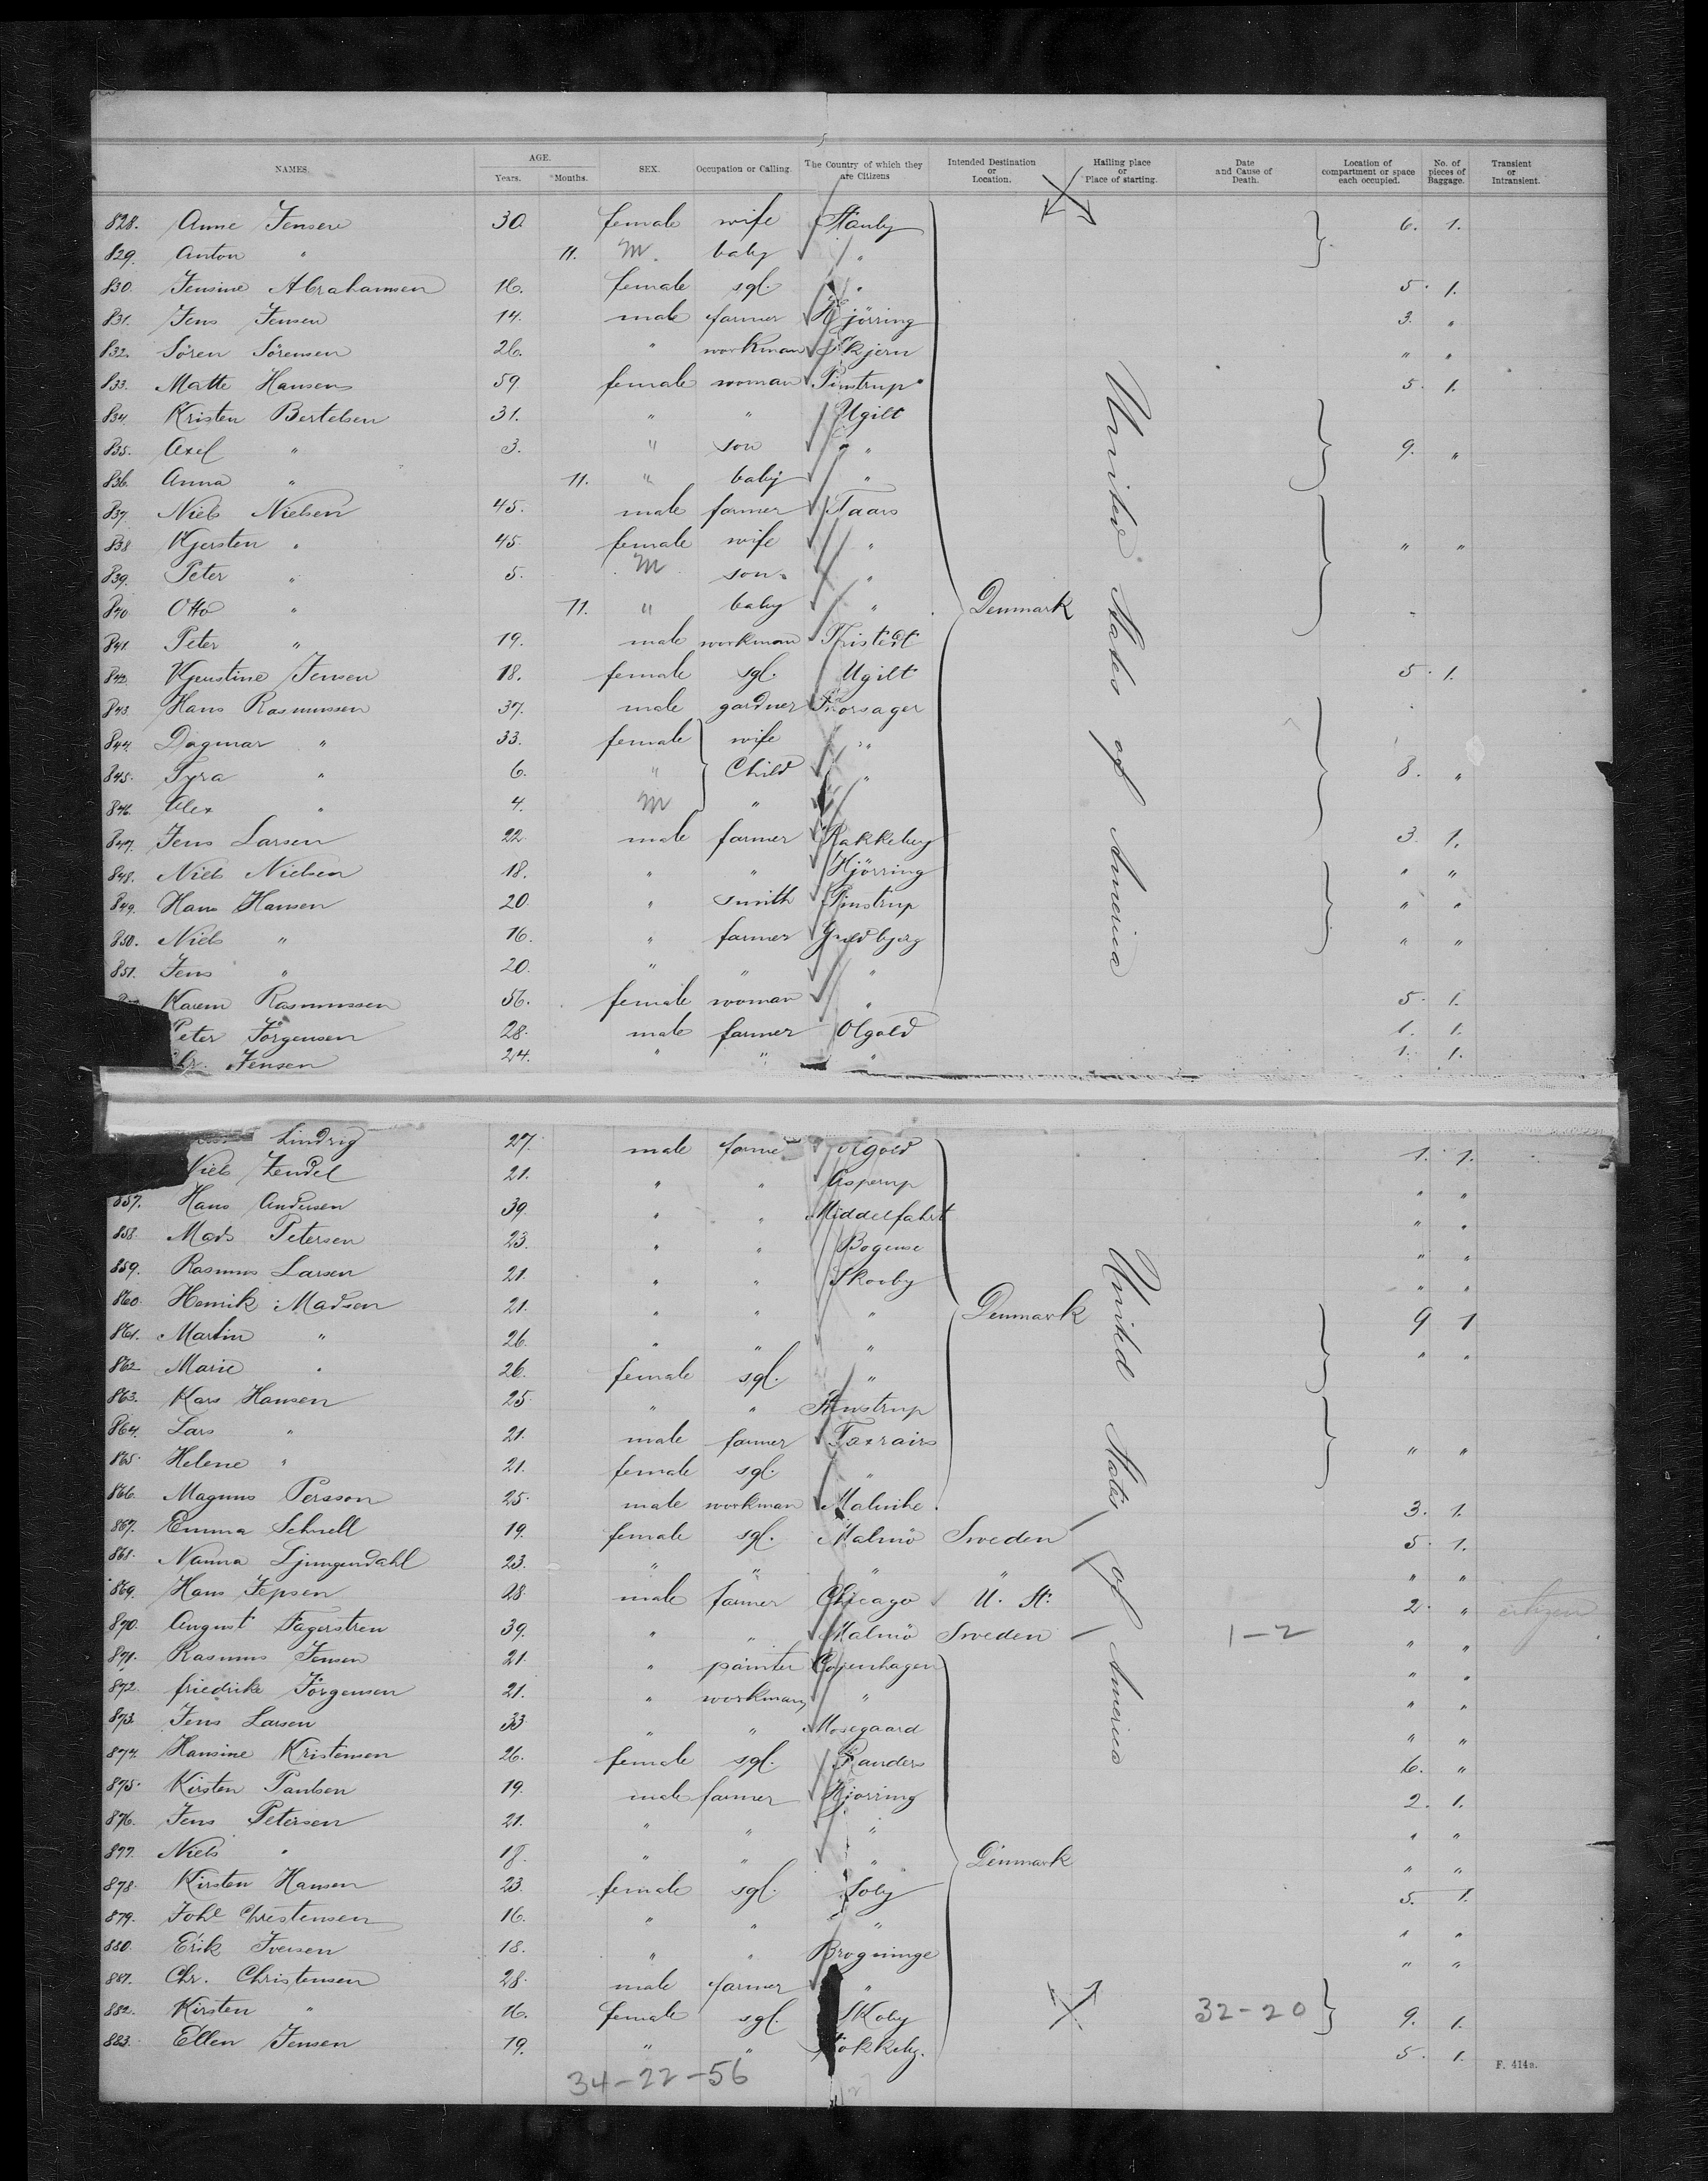 NAMES. AGE. Years. Months. SEX. Occupation or Calling. The Country of which they are Citizens Intended Destination or Location. Hailing place or Place of starting. Date and Cause of Death. Location of compartment or space each occupied. No. of pieces of Baggage. Transient or Intransient.
828. Anne Jensen 30 female wife 6. 1.
829. Anton " 11. M. baby "
830. Jensine Abrahamsen 16. female sgl. " 5. 1.
831. Jens Jensen 14. male farmer Hjörring 3. "
832. Sören Sörensen 26. " workman Skjern " "
833. Matte Hansen 59. female woman Pinstrup 5. 1.
834. Kristen Bertelsen 31. " " Ugilt
835. Axel " 3. " son " 9. "
836. Anna " 11. " baby "
837. Niels Nielsen 45. male farmer Taars
838 Kjersten " 45. female wife " " "
839. Peter " 5. M son "
840 Otto " 11. " baby " Denmark
841. Peter " 19. male workman Tristedt
842. Kjerstine Jensen 18. female sgl. Ugilt 5. 1.
843. Hans Rasmussen 37. male gardner Thorsager
844. Dagmar " 33. female wife "
845. Tyra " 6. " Child " 8. "
846. Alex " 4. M "
847. Jens Larsen 22. male farmer Rakkeby 3. 1.
848. Niels Nielsen 18. " " Hjörring " "
849. Hans Hansen 20. " smith Pinstrup " "
850. Niels " 16. " farmer Gudbjerg " "
851. Jens " 20. " " "
Karen Rasmussen 56. female woman " 5. 1.
Peter Jörgensen 28. male farmer Olgod 1. 1.
Chr. Jensen 24. " " " 1. 1.
United States of America
Lindvig 27. male farmer Olgod 1. 1.
Niels Zendel 21. " " Asperup " "
857. Hans Andersen 39. " " Middelfahrt " "
858. Mads Petersen 23. " " Bogense " "
859. Rasmus Larsen 21. " " Skovby " "
860. Henrik Madsen 21. " " " Denmark 9 1
861. Martin " 26. " " " " "
862 Marie " 26. female sgl. "
863. Kars Hansen 25. " "
864. Lars " 21. male farmer " "
865. Helene " 21. female sgl. "
866. Magnus Persson 25. male workman 3. 1.
867. Emma Schnell 19. female sgl. Malmö Sweden 5. 1.
868. Nanna Ljungendahl 23. " " " " " "
869. Hans Jepsen 28. male farmer Chicago U. St. 2. " citizen
870. August Fagerstren 39. " " Malmö Sweden 1-2 " "
871. Rasmus Jensen 21. " painter Copenhagen " "
872. friedrike Jörgensen 21. " workman " " "
873. Jens Larsen 33. " " Mosegaard " "
874. Hansine Kristensen 26. female sgl. Randers 6. "
875. Kirsten Paulsen 19. male farmer Hjorring 2. 1.
876. Jens Petersen 21. " " " " "
877. Niels " 18. " " " Denmark " "
878. Kirsten Hansen 23. female sgl. Soby 5. 1.
879. Johe Christensen 16. " " " " "
880. Erik Iversen 18. " " Brogninge " "
881. Chr. Christensen 28. male farmer "
882. Kirsten " 16. female sgl. Skoby 32-20 9. 1.
883. Ellen Jensen 19. " " 5. 1.
United States of America
34-22-56
F. 414a.